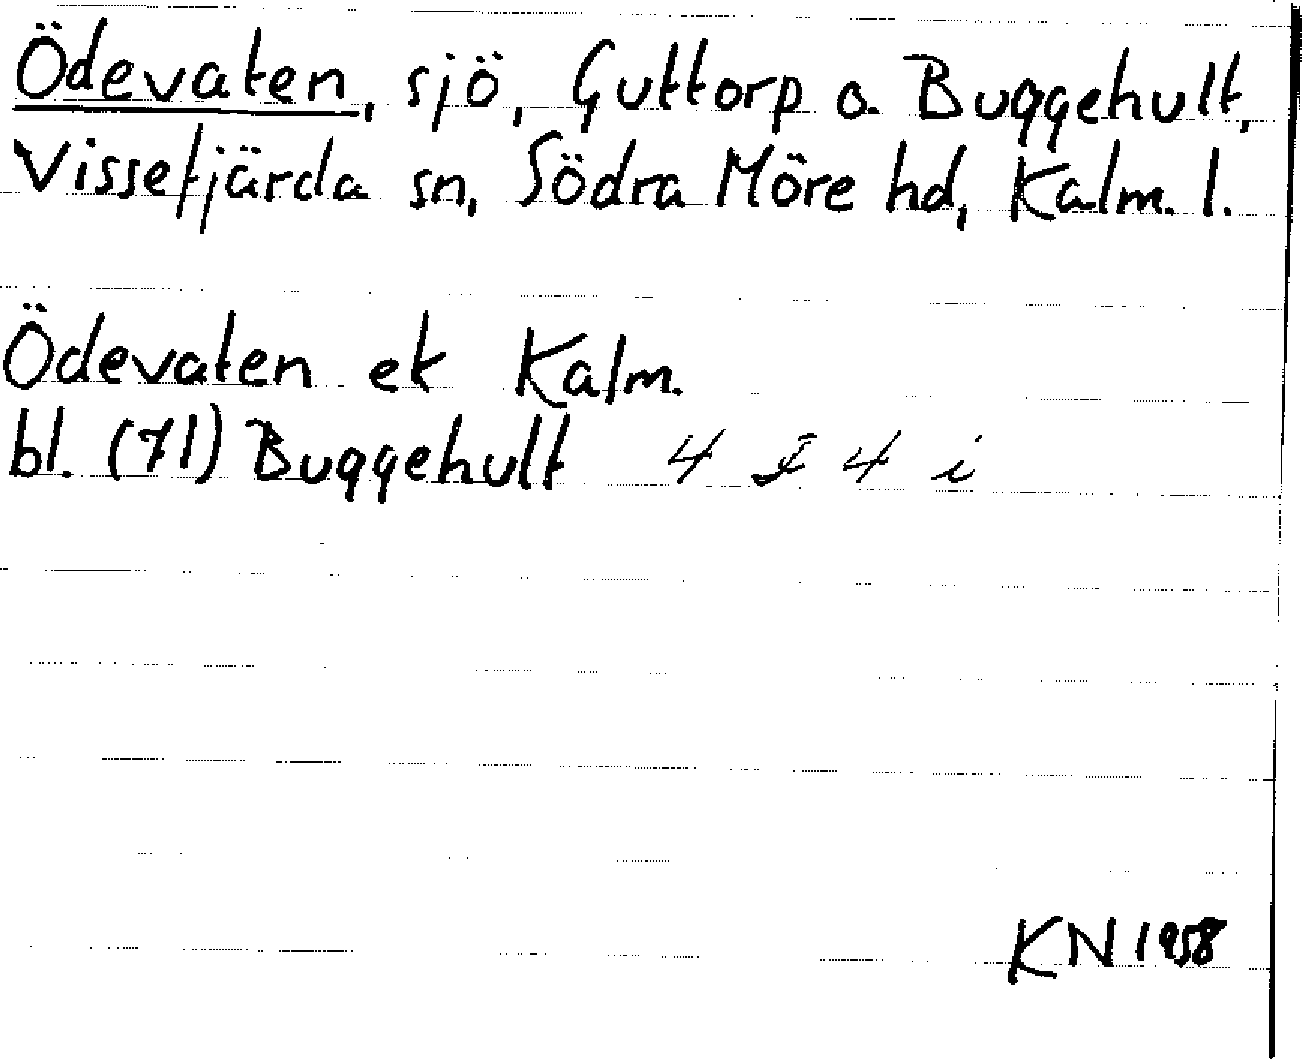 Ödevaten, sjö, Guttorp o. Buggehult,
Vissefjärda sn, Södra Möre hd, Kalm. l.
Ödevaten ek Kalm.
bl. (71) Buggehult 4 F 4 i
KN 1958